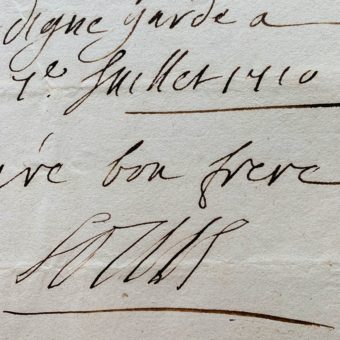 digne garde a
7e Juillet 1710
bon frere
Louis